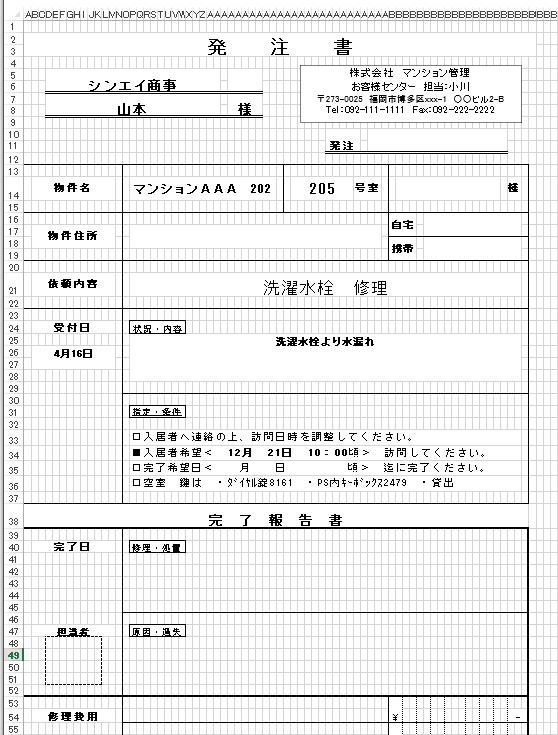 発 注 書
株式会社 マンション管理
お客様センター 担当:小川
〒273-0025 福岡市博多区xxx-1 〇〇ビル2-B
Tel:092-111-1111 Fax:092-222-2222
シンエイ商事
山本 様
発注
物件名 マンションAAA 202 205 号室 様
物件住所 自宅
携帯
依頼内容 洗濯水栓 修理
受付日 状況・内容
4月16日 洗濯水栓より水漏れ
指定・条件
□入居者へ連絡の上、訪問日時を調整してください。
■入居者希望< 12月 21日 10:00頃> 訪問してください。
□完了希望日< 月 日 頃> 迄に完了ください。
□空室 鍵は ・ダイヤル錠8161 ・PS内キーボックス2479 ・貸出
完 了 報 告 書
完了日 修理・処置
担当者 原因・過失
修理費用 ¥ -